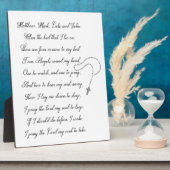 Matthew, Mark, Luke and John,
Bless the bed that I lie on.
There are four corners to my bed,
Four Angels round my head,
One to watch, and one to pray,
And two to bear my soul away.
Now I lay me down to sleep,
I pray the Lord my soul to keep.
If I should die before I wake,
I pray the Lord my soul to take.